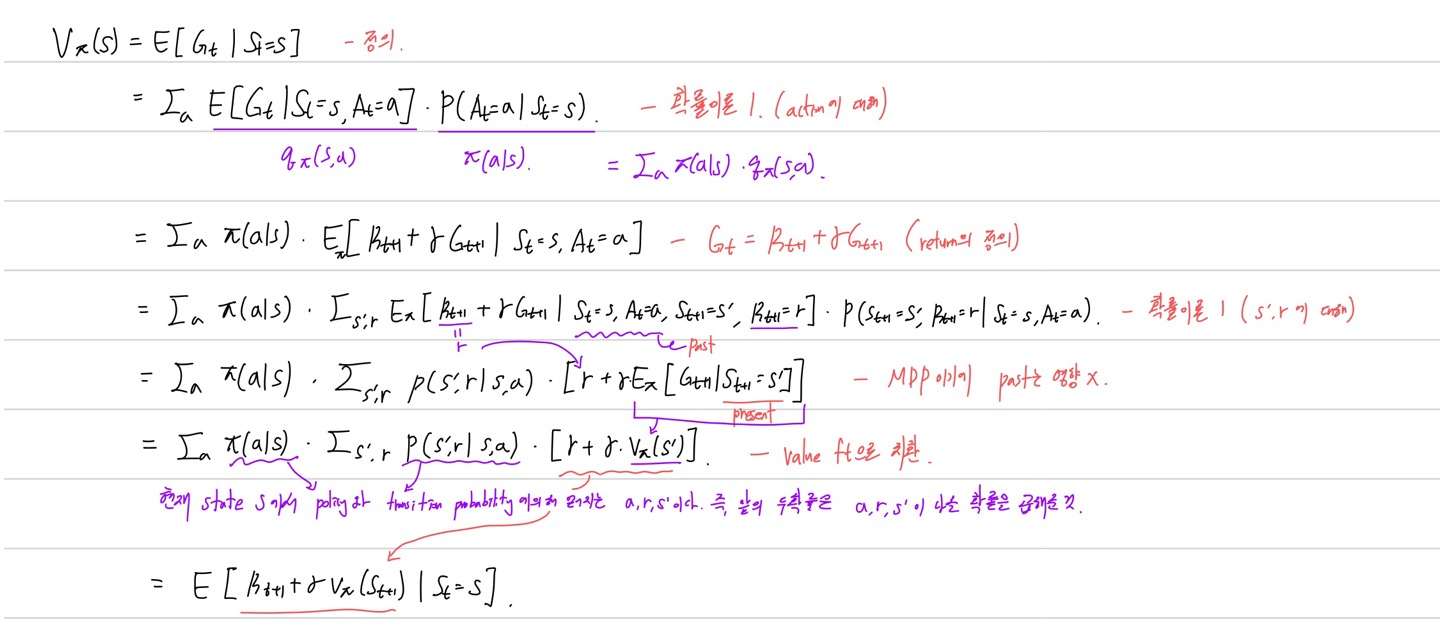 Vπ(s) = E[Gt | St=s] - 정의.
= Σa E[Gt | St=s, At=a] · P(At=a | St=s). - 확률이론 1. (action에 대해)
qπ(s,a) π(a|s). = Σa π(a|s) · qπ(s,a).
= Σa π(a|s) · Eπ[Rt+1 + γGt+1 | St=s, At=a] - Gt = Rt+1 + γGt+1 (return의 정의)
= Σa π(a|s) · Σs',r Eπ[Rt+1 + γGt+1 | St=s, At=a, St+1=s', Rt+1=r] · P(St+1=s', Rt+1=r | St=s, At=a). - 확률이론 1 (s',r에 대해)
= r past
= Σa π(a|s) · Σs',r p(s',r|s,a) · [r + γEπ[Gt+1 | St+1=s']] - MDP이기에 past는 영향 X.
present
= Σa π(a|s) · Σs',r p(s',r|s,a) · [r + γ·Vπ(s')]. - value ft으로 치환.
현재 state s에서 policy와 transition probability에 의해 a,r,s'이다. 즉, 앞의 두확률은 a,r,s'이 나올 확률을 곱해준것.
= E[Rt+1 + γVπ(St+1) | St=s].